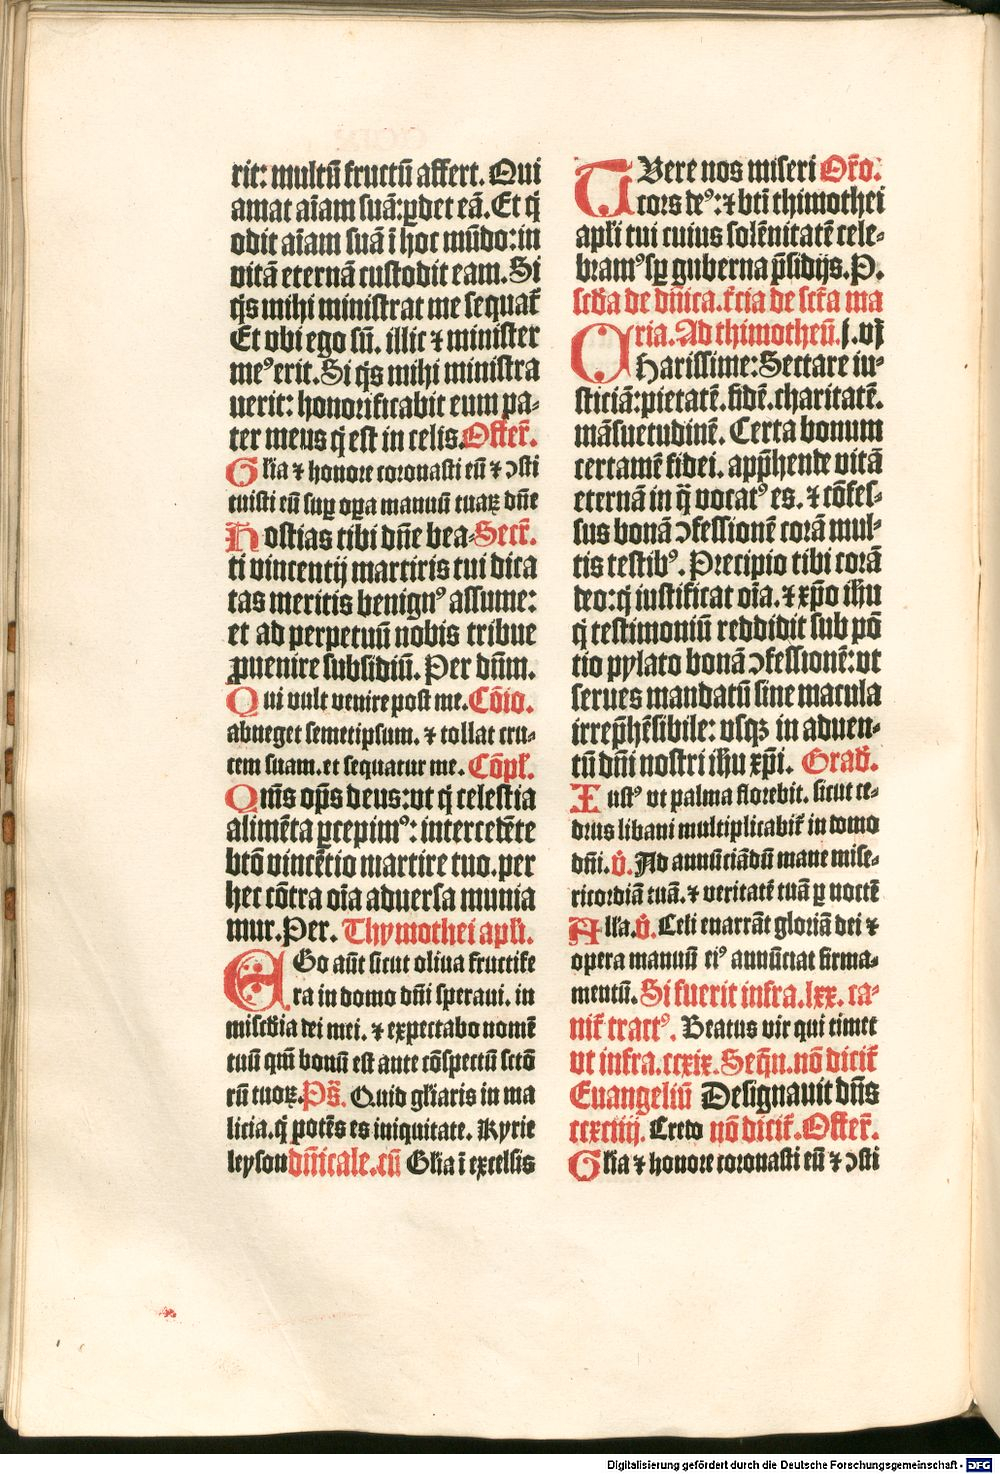 rit: multū fructū affert. Qui
amat aīam suā: ꝑdet eā. Et q̄
odit aīam suā ī hoc mūdo: in
vitā eternā custodit eam. Si
q̄s mihi ministrat me sequat̄
Et vbi ego sū. illic ⁊ minister
meꝰ erit. Si q̄s mihi ministra
uerit: honorificabit eum pa⸗
ter meus q̄ est in celis. Offer̄.
Gl̄ia ⁊ honore coronasti eū ⁊ ↄsti
tuisti eū suꝑ oꝑa manuū tuaꝝ dn̄e
Hostias tibi dn̄e bea⸗ Secr̄.
ti vincentij martiris tui dica
tas meritis benignꝰ assume:
et ad perpetuū nobis tribue
ꝓuenire subsidiū. Per dūm.
Qui vult venire post me. Cōio.
abneget semetipsum. ⁊ tollat cru⸗
cem suam. et sequatur me. Cōpl̄.
Qm̄s op̄s deus: vt q̄ celestia
alimēta ꝑcepimꝰ: intercedēte
btō vincētio martire tuo. per
hec cōtra oīa aduersa munia
mur. Per. Thymothei apl̄i.
EGo aūt sicut oliua fructife
ra in domo dn̄i speraui. in
misc̄dia dei mei. ⁊ expectabo nomē
tuū qm̄ bonū est ante cōspectū sctō
rū tuoꝝ. Ps̄. Quid gl̄iaris in ma
licia. q̄ potēs es iniquitate. Kyrie
leyson dn̄icale. cū Gl̄ia ī excelsis
TVere nos miseri Or̄o.
cors deꝰ: ⁊ btī thimothei
apl̄i tui cuius solēnitatē cele⸗
bramꝰ sꝑ guberna p̄sidijs. P.
sc̄da de dn̄ica. t̄cia de sct̄a ma
ria. Ad thimotheū. j. vj
CHarissime: Sectare iu⸗
sticiā: pietatē. fidē. charitatē.
māsuetudinē. Certa bonum
certamē fidei. app̄hende vitā
eternā in q̄ vocatꝰ es. ⁊ cōfes⸗
sus bonā ↄfessionē corā mul⸗
tis testibꝰ. Precipio tibi corā
deo: q̄ iustificat oīa. ⁊ xp̄o ih̄u
q̄ testimoniū reddidit sub pō
tio pylato bonā ↄfessionē: vt
serues mandatū sine macula
irrep̄hēsibile: vsqꝫ in aduen⸗
tū dn̄i nostri ih̄u xp̄i. Grad̄.
Iustꝰ vt palma florebit. sicut ce⸗
drus libani multiplicabit̄ in domo
dn̄i. v̄. Ad annūciādū mane mise⸗
ricordiā tuā. ⁊ veritatē tuā ꝑ noctē
All̄a. v̄. Celi enarrāt gloriā dei ⁊
opera manuū eiꝰ annūciat firma⸗
mentū. Si fuerit infra. lxx. ca⸗
nit̄ tractꝰ. Beatus vir qui timet
vt infra. ccxix. Seq̄n. nō dicit̄
Euangeliū Designauit dn̄s
ccxciiij. Credo nō dicit̄. Offer̄.
Gl̄ia ⁊ honore coronasti eū ⁊ ↄsti
Digitalisierung gefördert durch die Deutsche Forschungsgemeinschaft - DFG